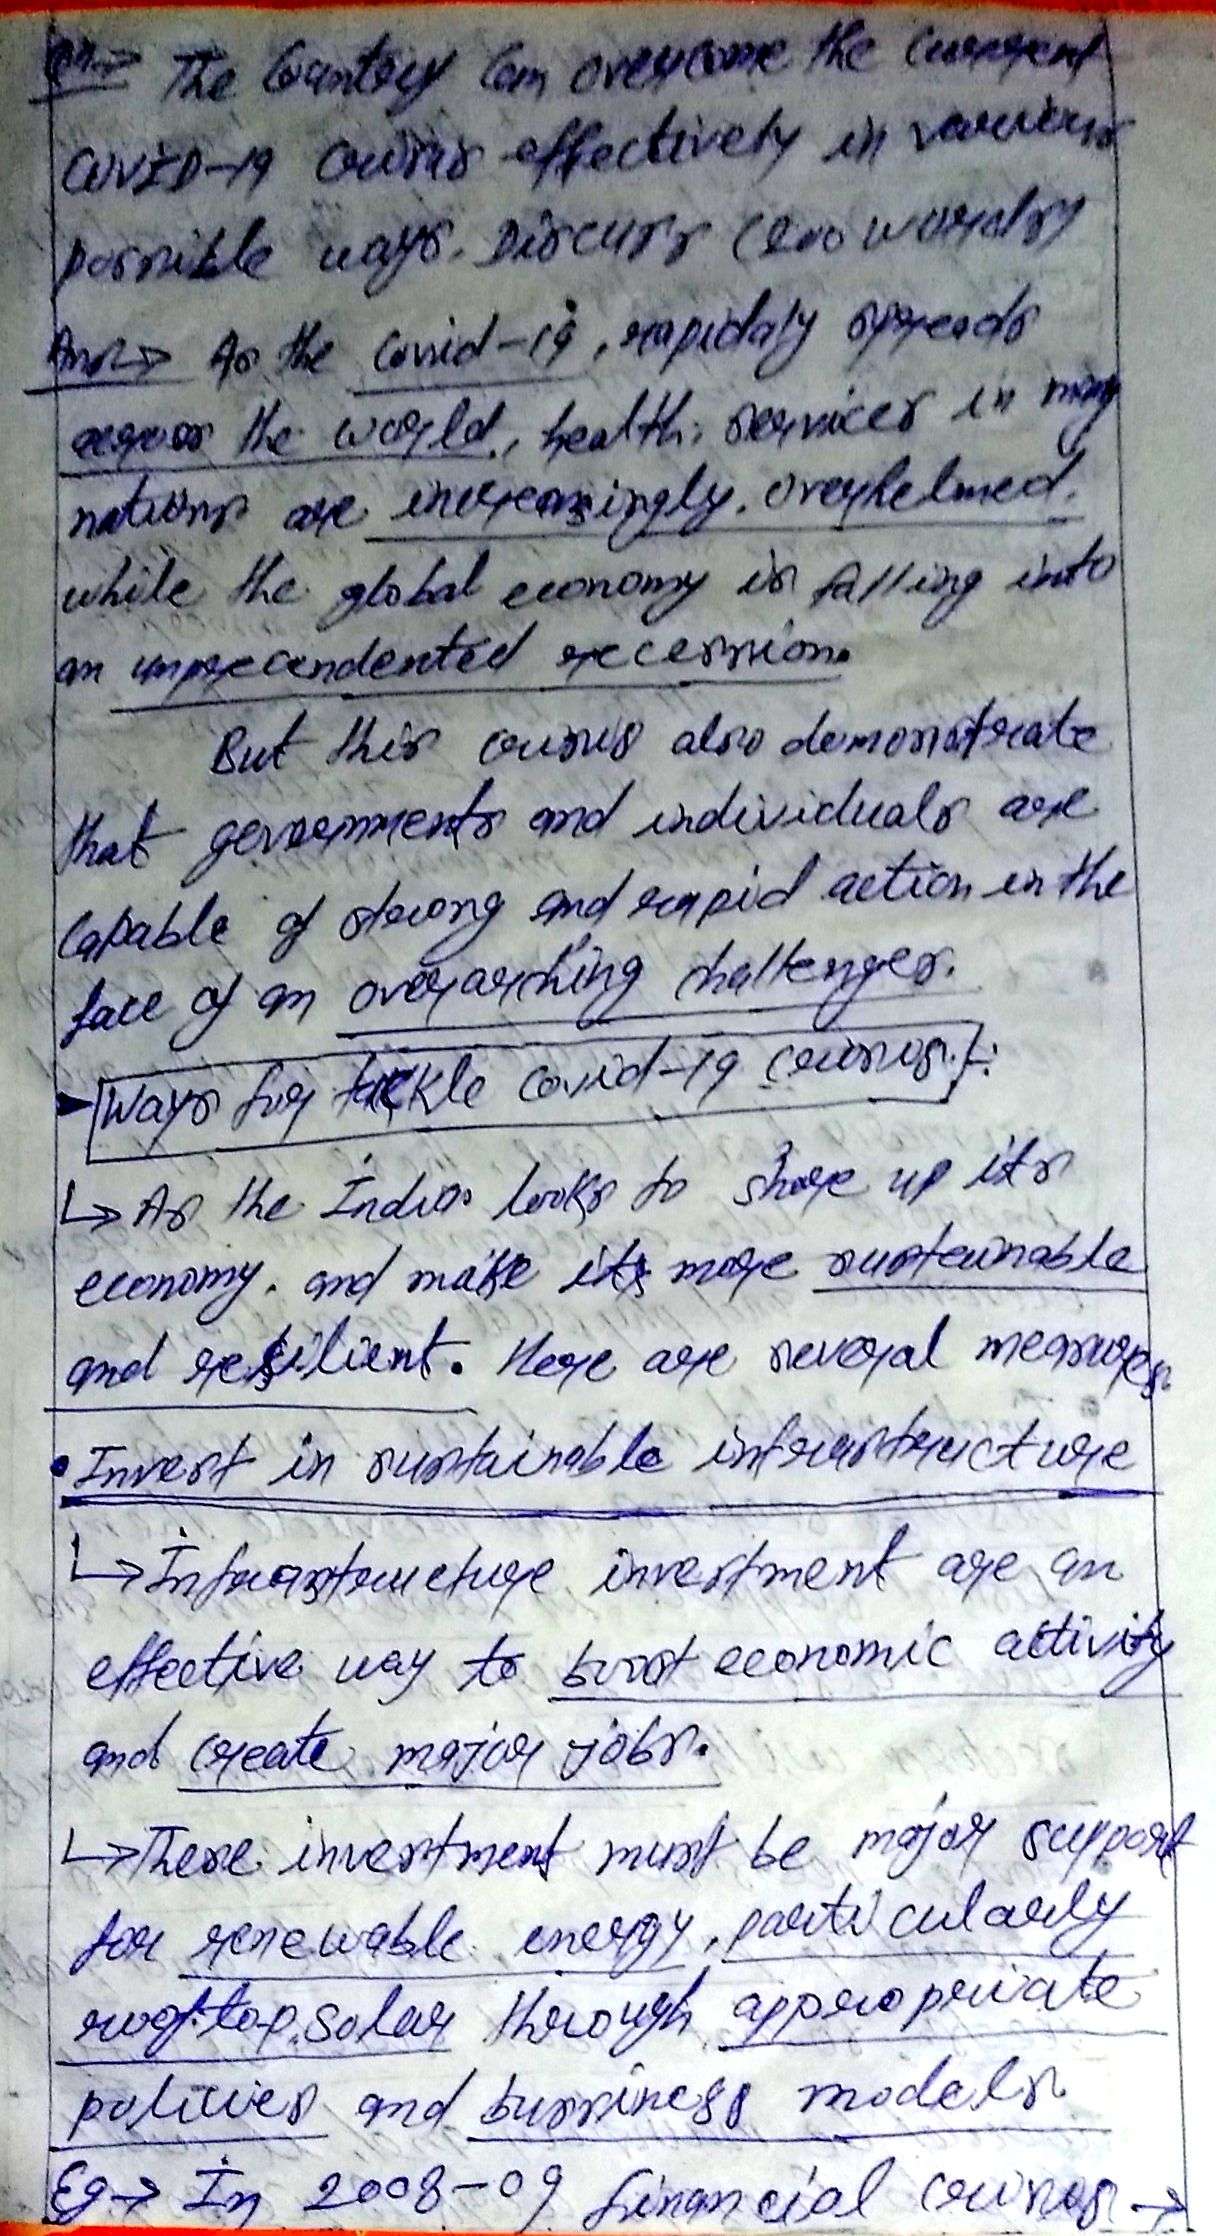 Qn→ The Country Can overcome the current
COVID-19 crisis effectively in various
possible ways. Discuss (200 words)
Ans→ As the Covid-19, rapidaly spreads
across the world, health services in many
nations are increasingly overhelmed.
while the global economy is falling into
an unprecendented recession.
But this crisis also demonstrate
that governments and individuals are
capable of strong and rapid action in the
face of an overarching challenges.
Ways for tackle Covid-19 crisis:
↳ As the India looks to shore up its
economy. and make its more sustainable
and resilient. there are several measures
• Invest in sustainable infrastructure
↳ Infrastructure investment are an
effective way to boost economic activity
and create major jobs.
↳ These investment must be major support
for renewable energy, particularly
rooftop solar through appropriate
policies and bussiness models
Eg→ In 2008-09 financial crises →